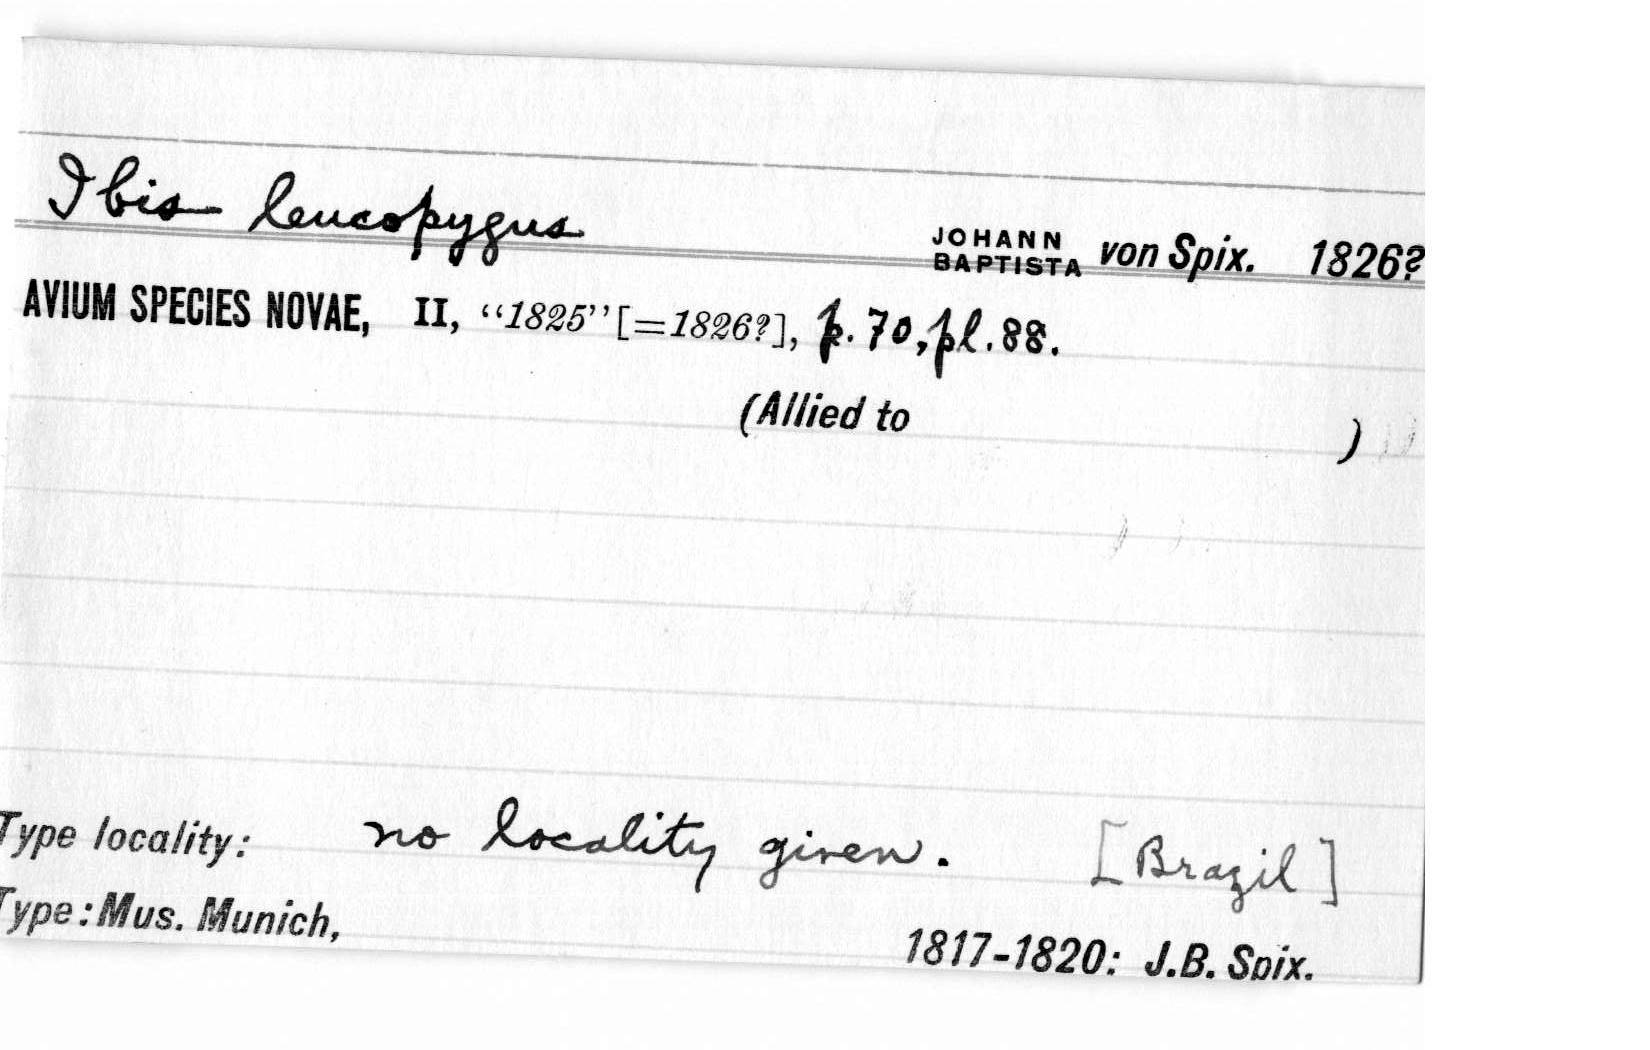 Ibis leucopygus JOHANN BAPTISTA von Spix. 1826?
AVIUM SPECIES NOVAE, II, “1825” [=1826?], p. 70, pl. 88.
(Allied to )
Type locality: no locality given. [Brazil]
Type: Mus. Munich, 1817-1820: J.B. Spix.